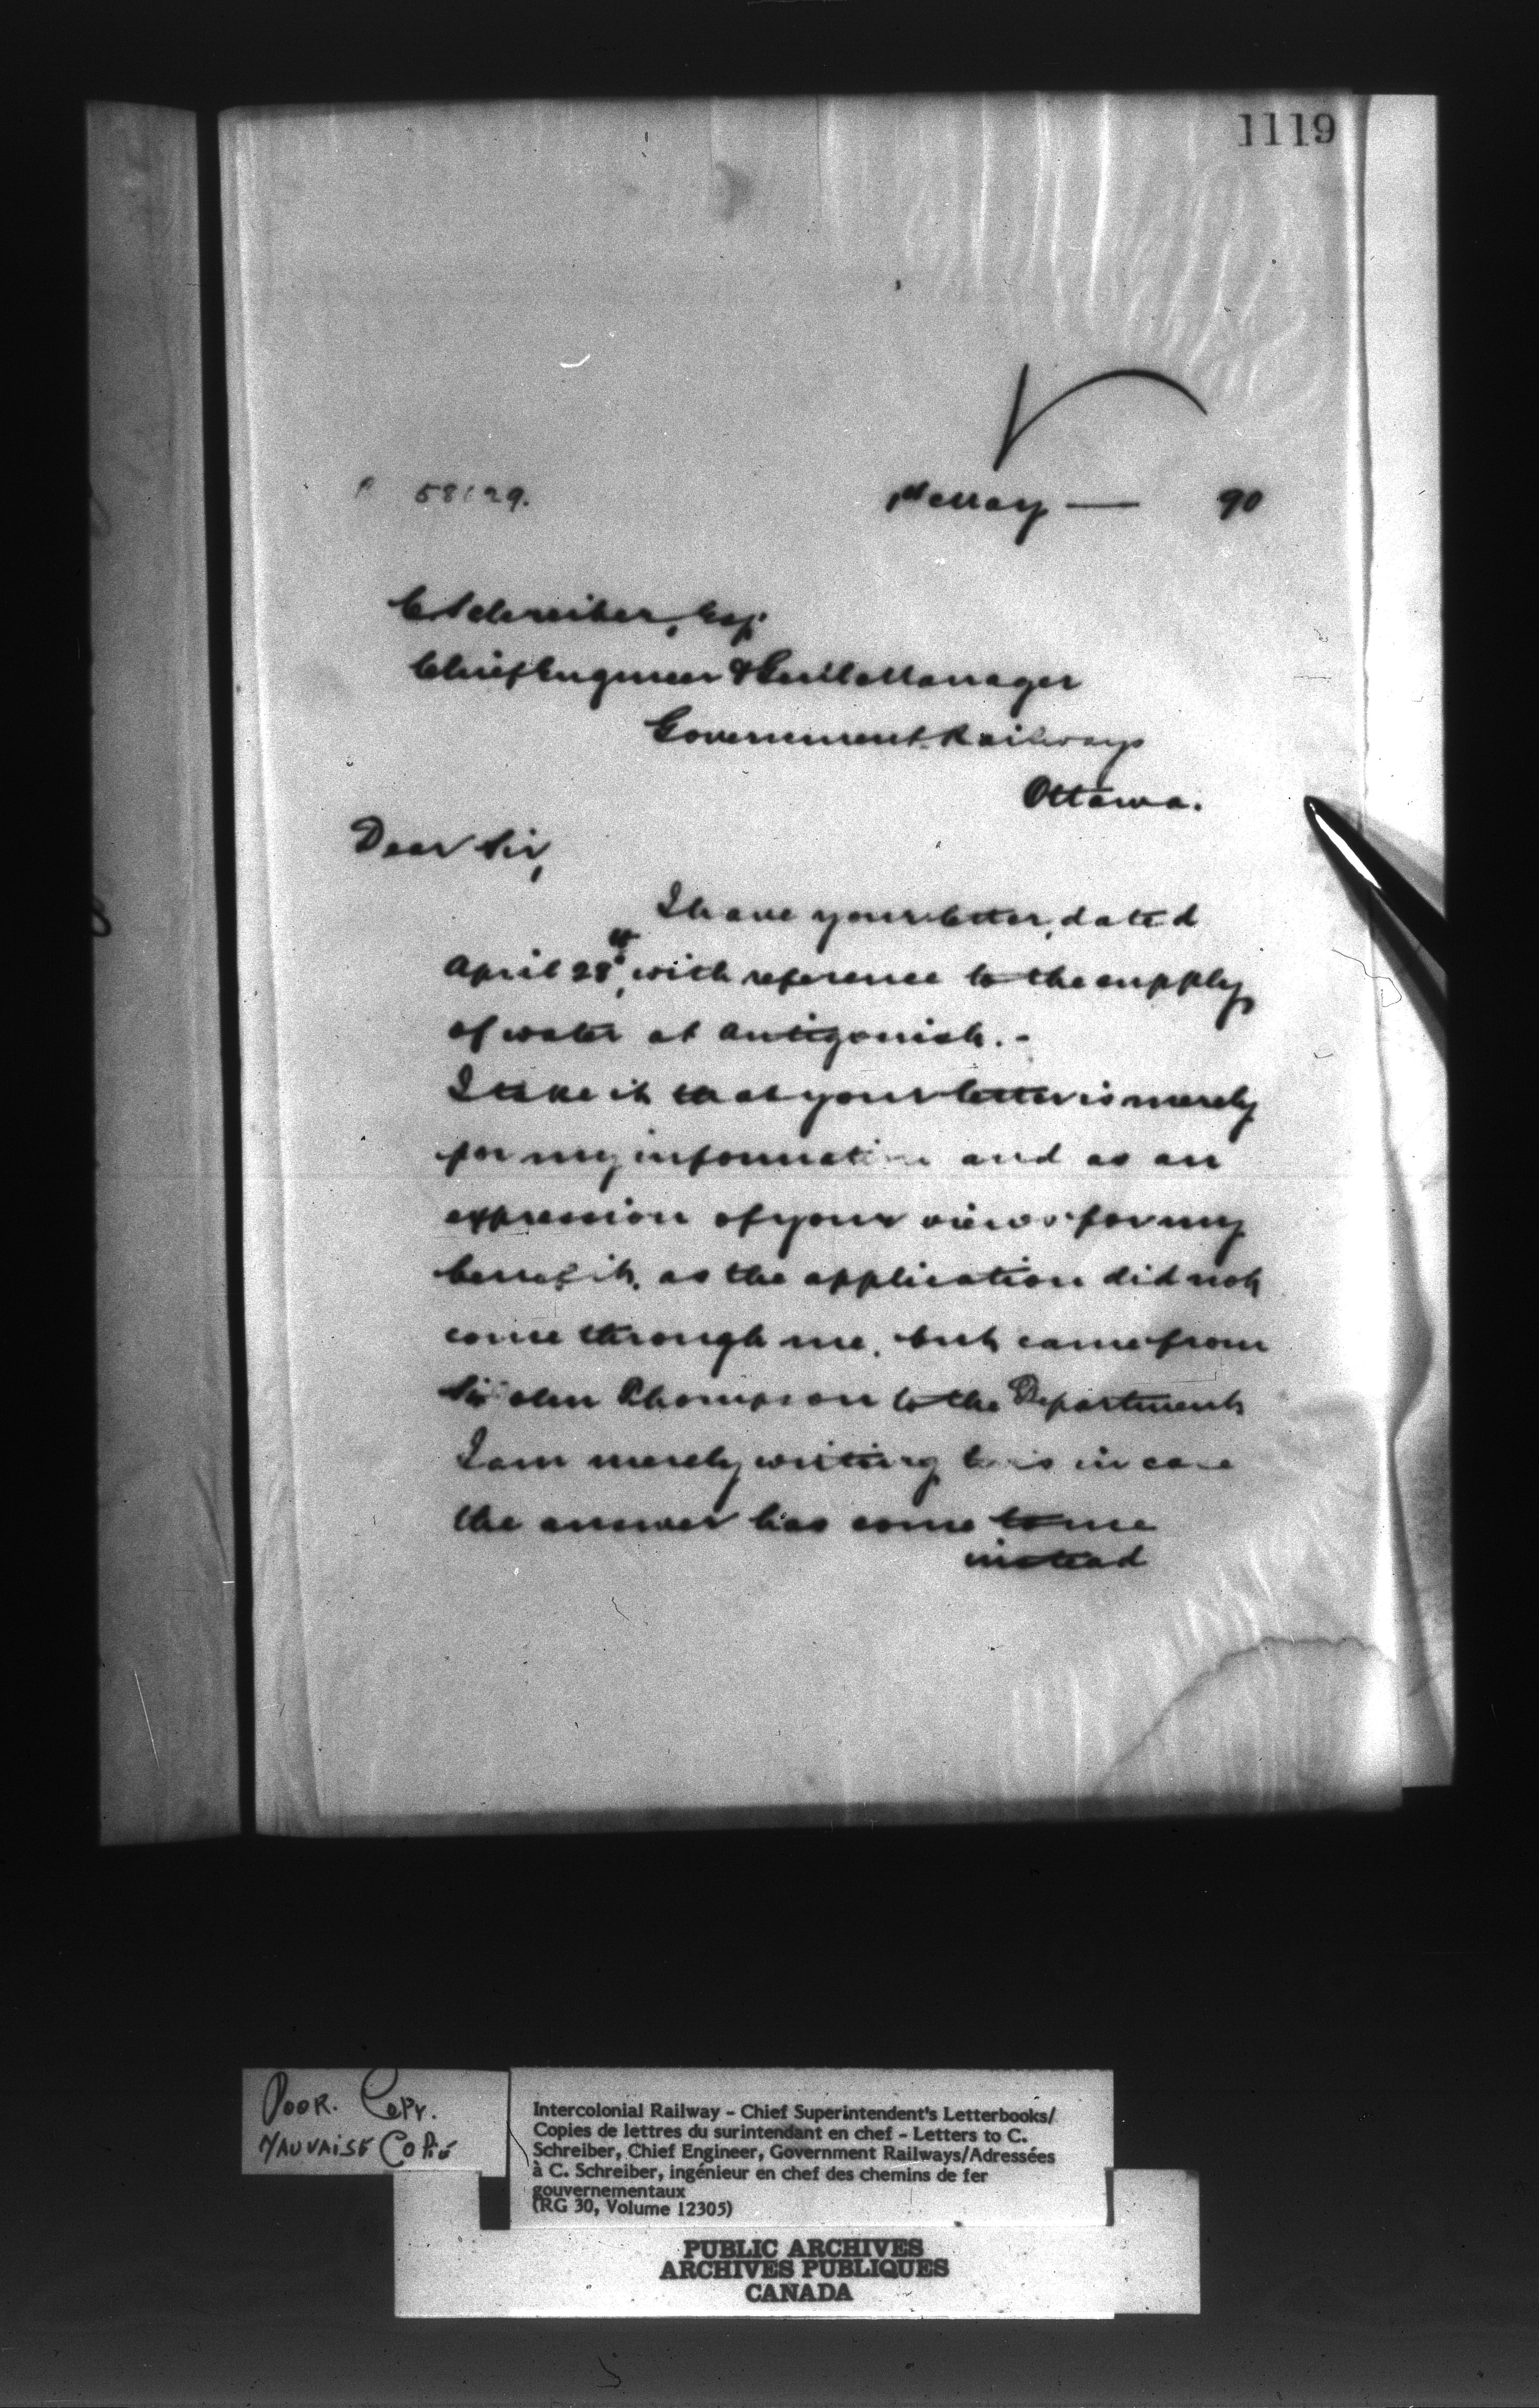 1119
58129.
1st May — 90
C Schreiber, Esq.
Chief Engineer & Genl Manager
Government Railways
Ottawa.
Dear Sir,
I have your letter, dated
April 28th, with reference to the supply
of water at Antigonish. -
I take it that your letter is merely
for my information and as an
expression of your views for my
benefit, as the application did not
come through me, but came from
Sir John Thompson to the Department
I am merely writing this in case
the answer has come to me
instead
POOR. COPY.
MAUVAISE COPIE
Intercolonial Railway - Chief Superintendent's Letterbooks/
Copies de lettres du surintendant en chef - Letters to C.
Schreiber, Chief Engineer, Government Railways/Adressées
à C. Schreiber, ingénieur en chef des chemins de fer
gouvernementaux
(RG 30, Volume 12305)
PUBLIC ARCHIVES
ARCHIVES PUBLIQUES
CANADA